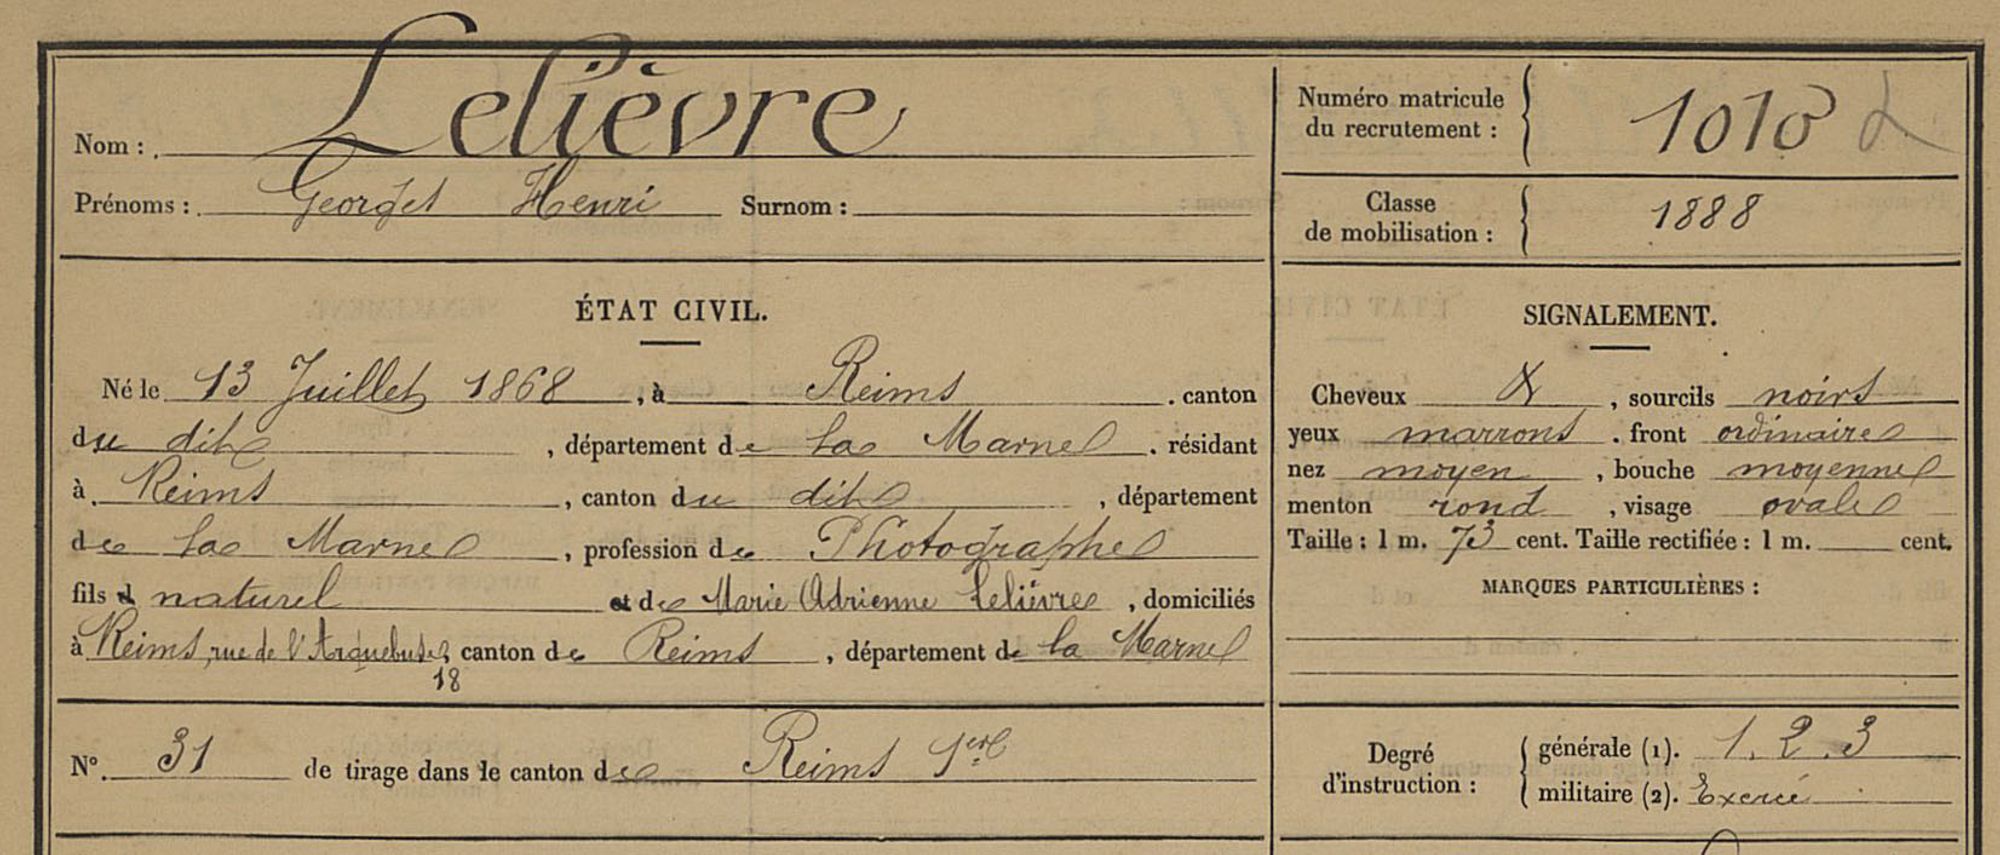 Nom : Lelièvre
Prénoms : Georges Henri Surnom :
Numéro matricule
du recrutement : 1010
Classe
de mobilisation : 1888
ÉTAT CIVIL.
Né le 13 Juillet 1868, à Reims. canton
du dit, département de la Marne. résidant
à Reims, canton du dit, département
de la Marne, profession de Photographe
fils naturel et de Marie Adrienne Lelièvre, domiciliés
à Reims, rue de l'Arquebuse, canton de Reims, département de la Marne
18
N° 31 de tirage dans le canton de Reims 1er
SIGNALEMENT.
Cheveux &, sourcils noirs
yeux marrons. front ordinaire
nez moyen, bouche moyenne
menton rond, visage ovale
Taille : 1 m. 73 cent. Taille rectifiée : 1 m. cent.
MARQUES PARTICULIÈRES :
Degré
d'instruction :
générale (1). 1. 2. 3
militaire (2). Exercé